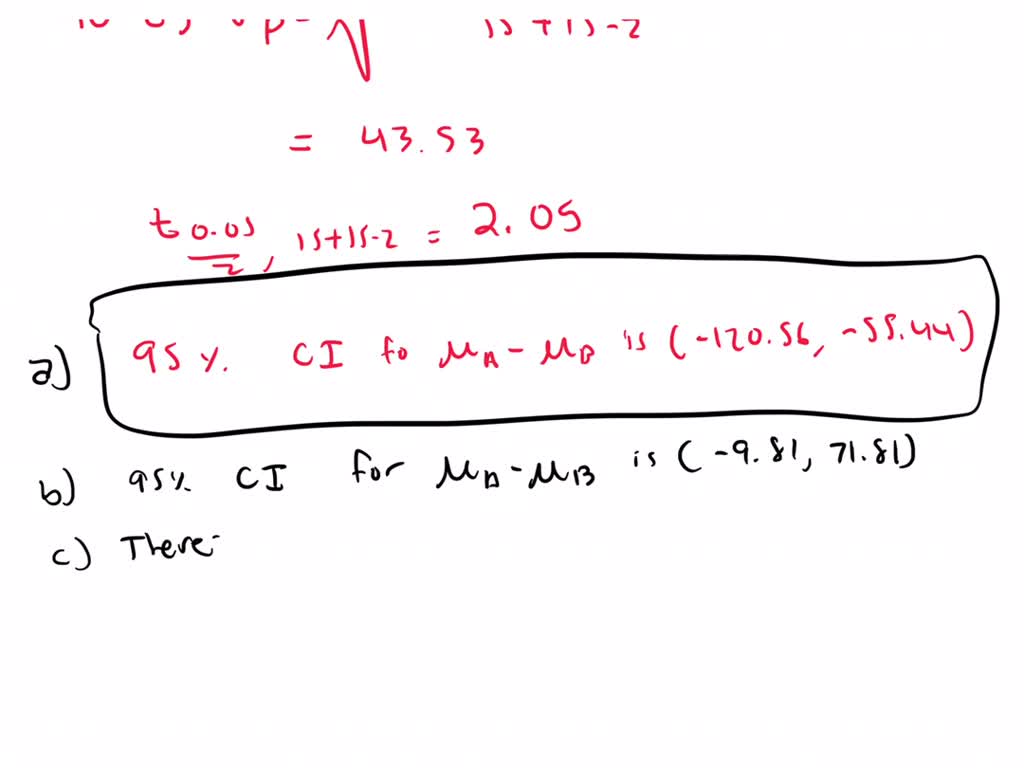 15+15-2
= 43.53
t 0.05/2, 15+15-2 = 2.05
a) 95 %. CI fo μA - μB is (-120.56, -55.44)
b) 95% CI for μA - μB is (-9.81, 71.81)
c) There